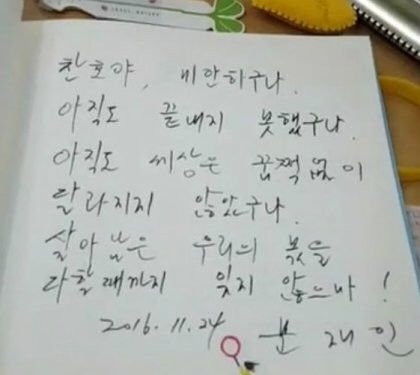 찬호야, 미안하구나.
아직도 끝내지 못했구나.
아직도 세상은 꿈쩍없이
달라지지 않았구나.
살아남은 우리의 몫을
다할때까지 잊지 않으마!
2016. 11. 24 문재인